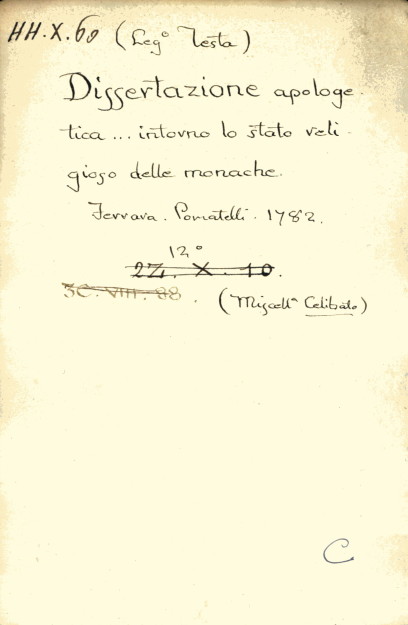 HH.X.60 (Leg° Testa)
Dissertazione apologe-
tica ... intorno lo stato reli-
gioso delle monache.
Ferrara. Pomatelli. 1782.
12°
2Z. X. 10.
3C. VIII. 88.
(Miscellª Celibato)
C